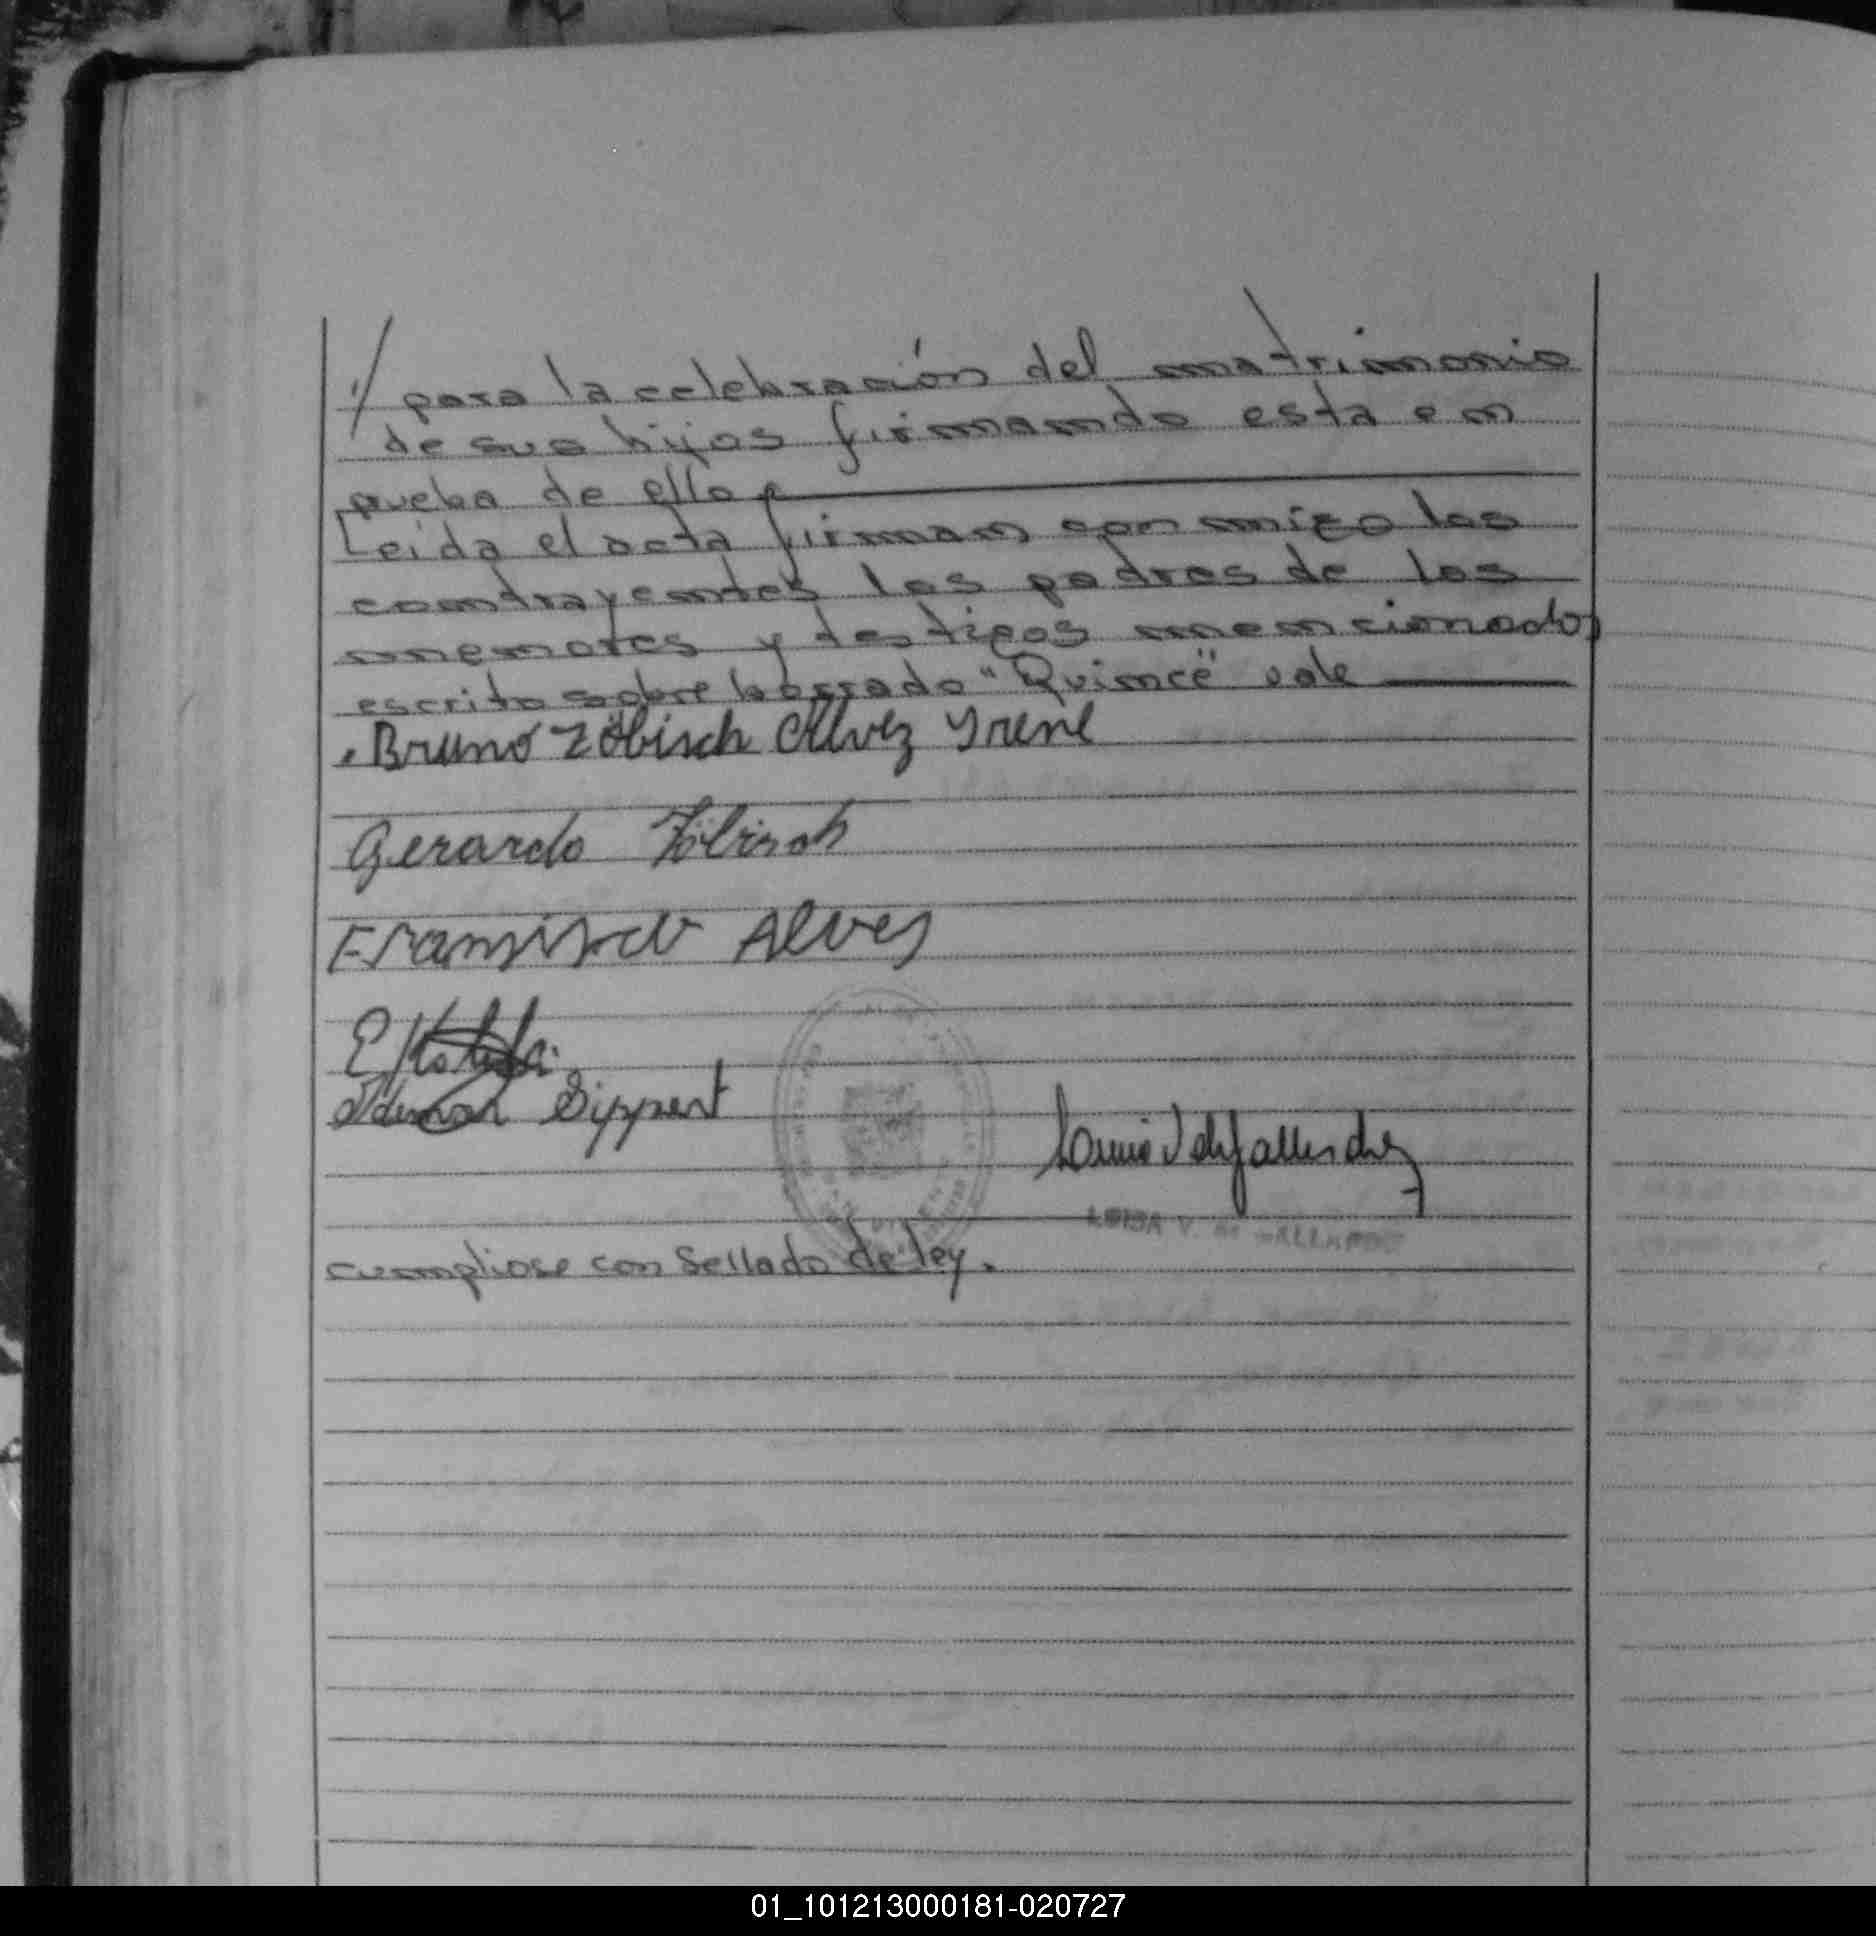 // para la celebración del matrimonio
de sus hijos firmando esta en
prueba de ello.
Leida el acta firman conmigo los
contrayentes los padres de los
menores y testigos mencionados
escrito sobre borrado "Quince" vale
Bruno Zöbisch Alvez Yrene
Gerardo Zöbisch
Fransisco Alves
Sippert
LUISA V. DE GALLARDO
cumpliose con Sellado de ley.
01_101213000181-020727